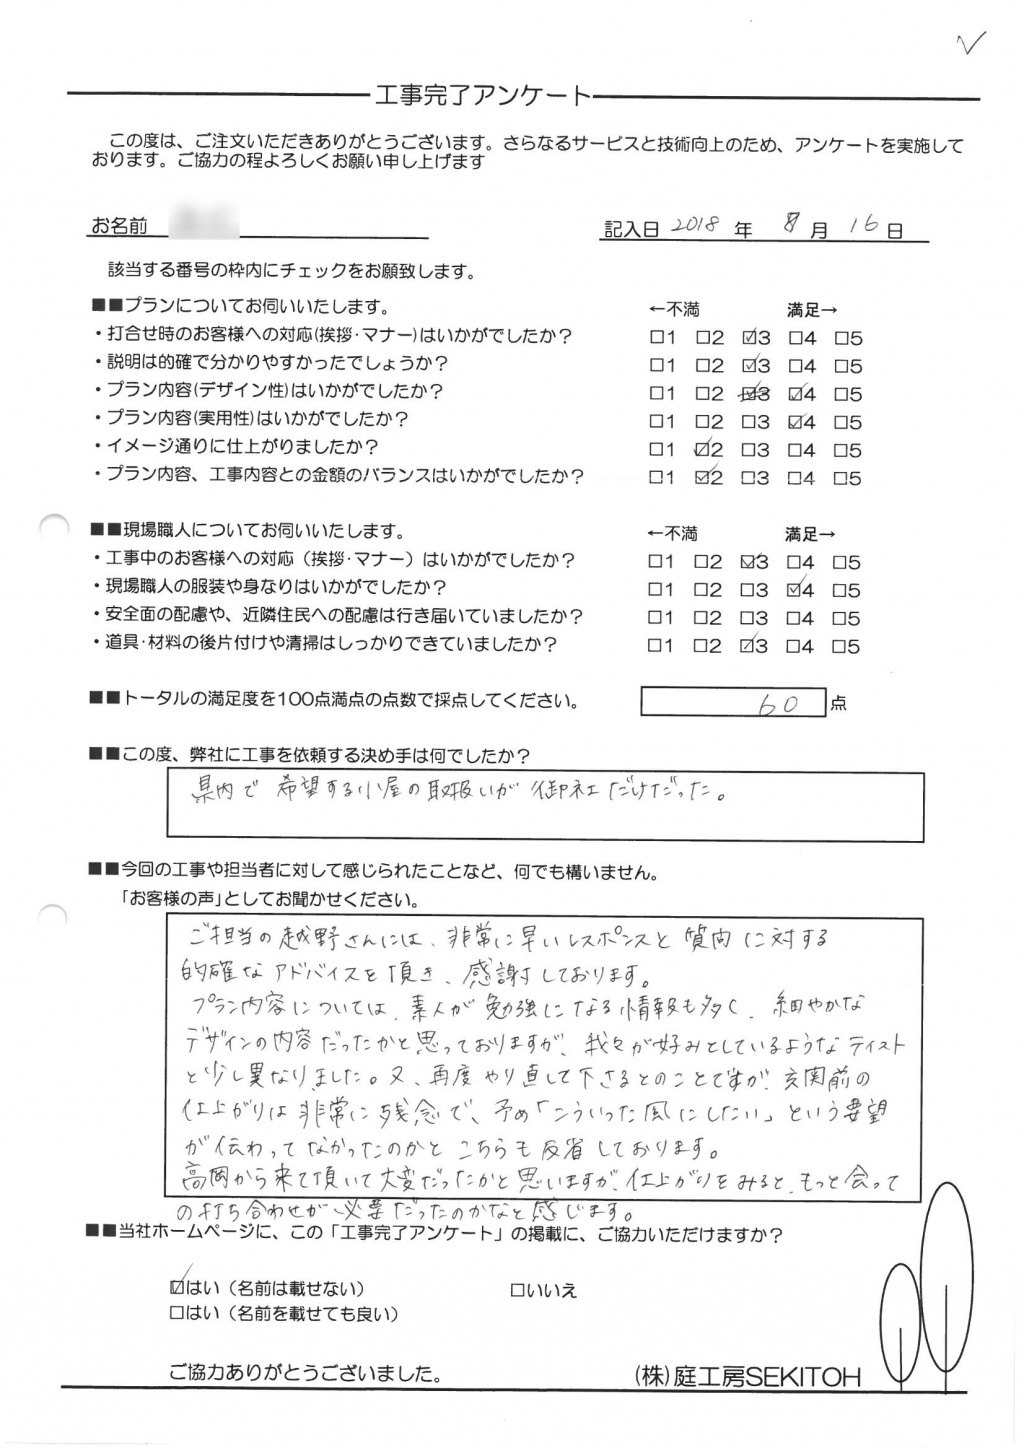 工事完了アンケート
この度は、ご注文いただきありがとうございます。さらなるサービスと技術向上のため、アンケートを実施して
おります。ご協力の程よろしくお願い申し上げます
お名前
記入日 2018 年 8 月 16 日
該当する番号の枠内にチェックをお願致します。
■■プランについてお伺いいたします。 ←不満 満足→
・打合せ時のお客様への対応(挨拶・マナー)はいかがでしたか? □1 □2 ☑3 □4 □5
・説明は的確で分かりやすかったでしょうか? □1 □2 ☑3 □4 □5
・プラン内容(デザイン性)はいかがでしたか? □1 □2 ☑3 ☑4 □5
・プラン内容(実用性)はいかがでしたか? □1 □2 □3 ☑4 □5
・イメージ通りに仕上がりましたか? □1 ☑2 □3 □4 □5
・プラン内容、工事内容との金額のバランスはいかがでしたか? □1 ☑2 □3 □4 □5
■■現場職人についてお伺いいたします。 ←不満 満足→
・工事中のお客様への対応（挨拶・マナー）はいかがでしたか? □1 □2 ☑3 □4 □5
・現場職人の服装や身なりはいかがでしたか? □1 □2 □3 ☑4 □5
・安全面の配慮や、近隣住民への配慮は行き届いていましたか? □1 □2 □3 □4 □5
・道具・材料の後片付けや清掃はしっかりできていましたか? □1 □2 ☑3 □4 □5
■■トータルの満足度を100点満点の点数で採点してください。 60 点
■■この度、弊社に工事を依頼する決め手は何でしたか?
県内で希望する小屋の取扱いが御社だけだった。
■■今回の工事や担当者に対して感じられたことなど、何でも構いません。
「お客様の声」としてお聞かせください。
ご担当の越野さんには、非常に早いレスポンスと質問に対する
的確なアドバイスを頂き、感謝しております。
プラン内容については、素人が勉強になる情報も多く、細やかな
デザインの内容だったかと思っておりますが、我々が好みとしているようなテイスト
と少し異なりました。又、再度やり直して下さるとのことですが、玄関前の
仕上がりは非常に残念で、予め「こういった風にしたい」という要望
が伝わってなかったのかとこちらも反省しております。
高岡から来て頂いて大変だったかと思いますが、仕上がりをみると、もっと会って
の打ち合わせが必要だったのかなと感じます。
■■当社ホームページに、この「工事完了アンケート」の掲載に、ご協力いただけますか?
☑はい（名前は載せない） □いいえ
□はい（名前を載せても良い）
ご協力ありがとうございました。
(株)庭工房SEKITOH